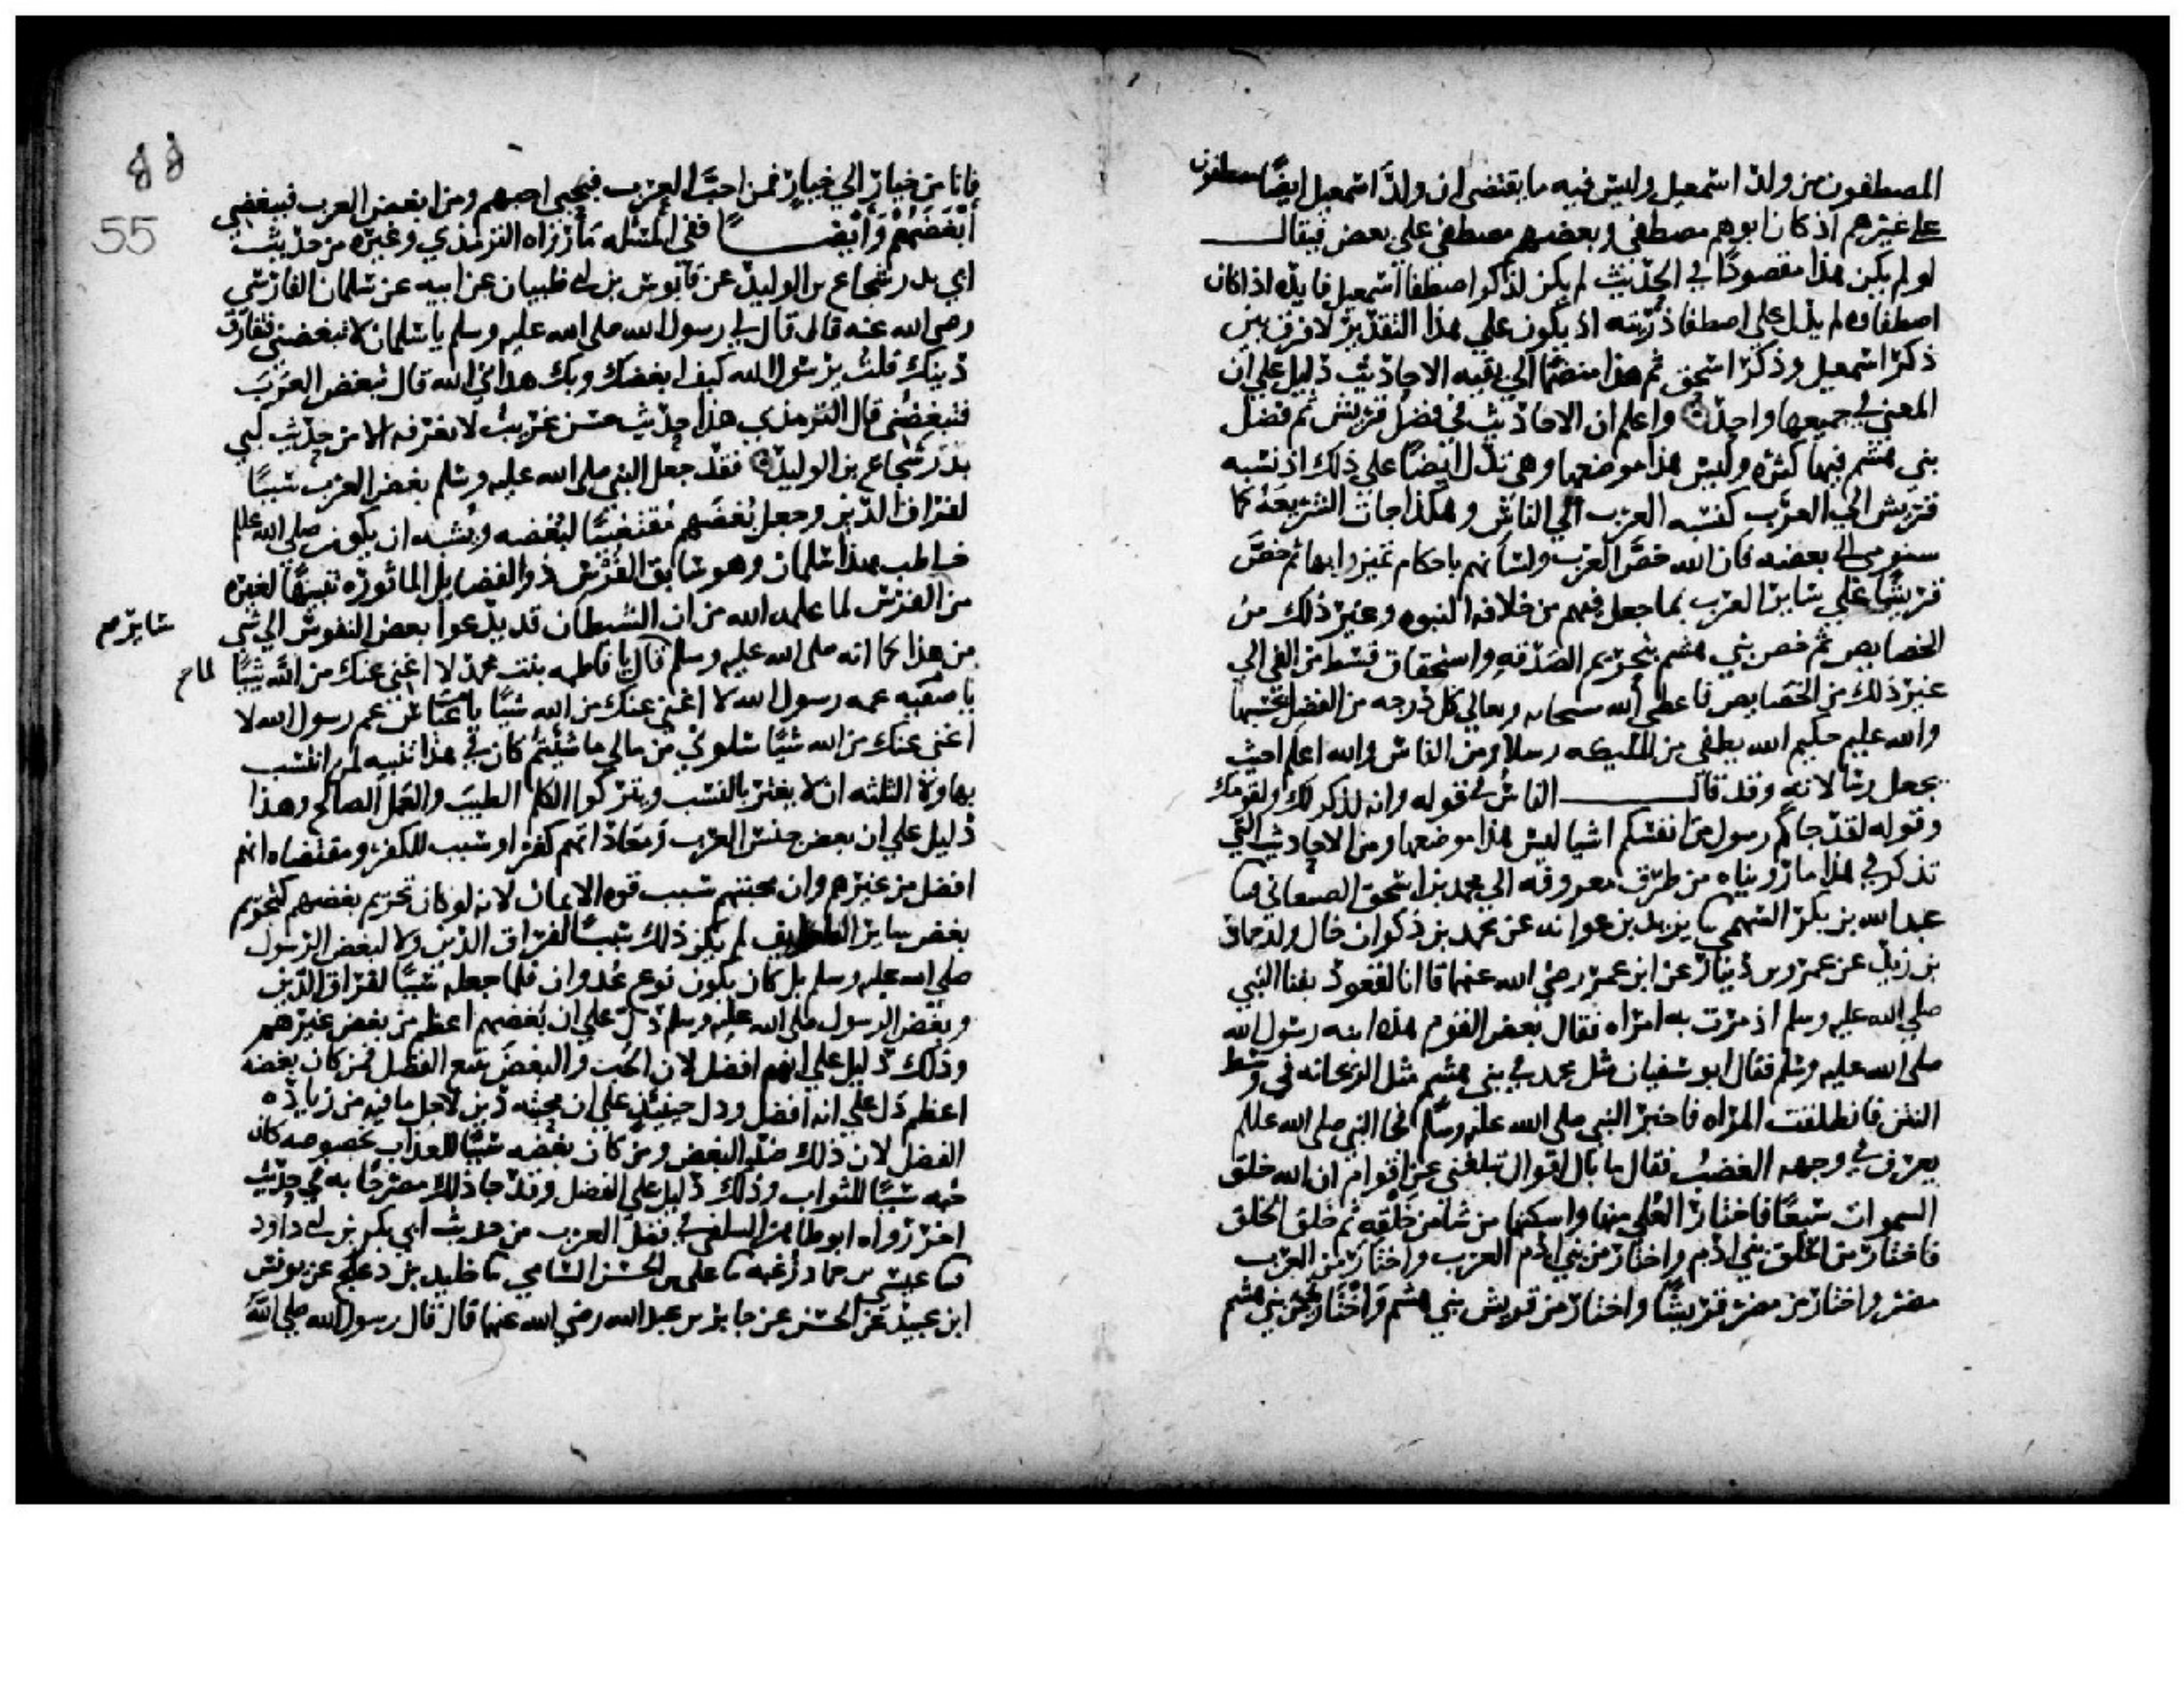 المصطفون من ولد اسمعيل وليس فيه ما يقتضي ان ولد اسمعيل ايضا مصطفون
على غيرهم اذ كان ابوهم مصطفى وبعضهم مصطفى علي بعض فيقال
لو لم يكن هذا مقصودا في الحديث لم يكن لذكر اصطفا اسمعيل فايده اذا كان
اصطفاوه لم يدل على اصطفا ذريته اذ يكون علي هذا التقدير لا فرق بين
ذكر اسمعيل وذكر اسحق ثم هذا منضما الي بقيه الاحاديث دليل علي ان
المعني في جميعها واحد واعلم ان الاحاديث في فضل قريش ثم فضل
بني هشم فيها كثره وليس هذا موضعها وهي تدل ايضا علي ذلك اذ نسبه
قريش الي العرب كنسبه العرب الي الناس وهكذا جات الشريعه كما
سنومي الى بعضه فان الله خص العرب ولسانهم باحكام تميزوا بها ثم خص
قريشا علي ساير العرب بما جعل فيهم من خلافه النبوه وغير ذلك من
الخصايص ثم خص بني هشم بتحريم الصدقه واستحقاق قسط من الفي الي
غير ذلك من الخصايص فاعطي الله سبحانه وتعالي كل درجه من الفضل بحسبها
والله عليم حكيم الله يصطفي من المليكه رسلا ومن الناس والله اعلم حيث
يجعل رسالاته وقد قال الناس في قوله وانه لذكر لك ولقومك
وقوله لقد جاكم رسول من انفسكم اشيا ليس هذا موضعها ومن الاحاديث التي
تذكر في هذا ما رويناه من طرق معروفه الي محمد بن اسحق الصغاني ثنا
عبد الله بن بكر السهمي ثنا يزيد بن عوانه عن محمد بن ذكوان خال ولد حماد
بن زيد عن عمرو بن دينار عن ابن عمر رضي الله عنهما قا انا لقعود بفنا النبي
صلي الله عليه وسلم اذ مرت به امراه فقال بعض القوم هذه ابنه رسول الله
صلى الله عليه وسلم فقال ابو سفيان مثل محمد في بني هشم مثل الريحانه في وسط
النتن فانطلقت المراه فاخبرت النبي صلى الله عليه وسلم فجا النبي صلى الله علم
يعرف في وجهه الغضب فقال ما بال اقوال تبلغني عن اقوام ان الله خلق
السموات سبعا فاختار العلي منها واسكنها من شا من خلقه ثم خلق الخلق
فاختار من الخلق بني ادم واختار من بني ادم العرب واختار من العرب
مضر واختار من مضر قريشا واختار من قريش بني هشم واختارني من بني هشم
55
فانا من خيار الي خيار فمن احب العرب فبحبي احبهم ومن ابغض العرب فببغضي
أبغضهم وأيضا ففي المسئله ما رواه الترمذي وغيره من حديث
ابي بدر شجاع بن الوليد عن قابوس بن ابي ظبيان عن ابيه عن سلمان الفارسي
رضى الله عنه قال قال لي رسول الله صلى الله عليه وسلم يا سلمان لا تبغضني فتفارق
دينك قلت يرسول الله كيف ابغضك وبك هداني الله قال تبغض العرب
فتبغضني قال الترمذي هذا حديث حسن غريب لا نعرفه الا من حديث ابي
بدر شجاع بن الوليد فقد جعل النبي صلى الله عليه وسلم بغض العرب سببا
لفراق الدين وجعل بغضهم مقتضيا لبغضه ويشبه ان يكون صلى الله علم
خاطب بهذا سلمان وهو سابق الفرس ذو الفضايل الماثوره تنبيها لغيره
من الفرس لما علمه الله من ان الشيطان قد يدعوا بعض النفوس الي شي
سايرهم
من هذا كما انه صلى الله عليه وسلم قال يا فاطمه بنت محمد لا اغني عنك من الله شيئا
يا صفيه عمه رسول الله لا اغني عنك من الله شيئا يا عباس عم رسول الله لا
اغني عنك من الله شيئا سلوني من مالي ما شئتم كان في هذا تنبيه لمن انتسب
بهاولا الثلثه ان لا يغتر بالنسب ويتركوا الكلم الطيب والعمل الصالح وهذا
دليل علي ان بعض جنس العرب ومعاداتهم كفر او سبب للكفر ومقتضاه انهم
افضل من غيرهم وان محبتهم سبب قوه الايمان لانه لو كان تحريم بغضهم كتحريم
بغض ساير الطوايف لم يكن ذلك سببا لفراق الدين ولا لبغض الرسول
صلي الله عليه وسلم بل كان يكون نوع عدوان فلما جعله سببا لفراق الدين
وبغض الرسول صلى الله عليه وسلم دل على ان بغضهم اعظم من بغض غيرهم
وذلك دليل علي انهم افضل لان الحب والبغض يتبع الفضل فمن كان بغضه
اعظم دل علي انه افضل ودل حينئذ علي ان محبته دين لاجل ما فيه من زياده
الفضل لان ذلك ضد البغض ومن كان بغضه سببا للعذاب بخصوصه كان
حبه سببا للثواب وذلك دليل على الفضل وقد جا ذلك مصرحا به في حديث
اخر رواه ابو طاهر السلفي في فضل العرب من حديث ابي بكر بن ابي داود
ثنا عيسى بن حماد زغبه ثنا على بن الحسن الشامي ثنا خليد بن دعلج عن يونس
ابن عبيد عن الحسن عن جابر بن عبد الله رضي الله عنهما قال قال رسول الله صلى الله